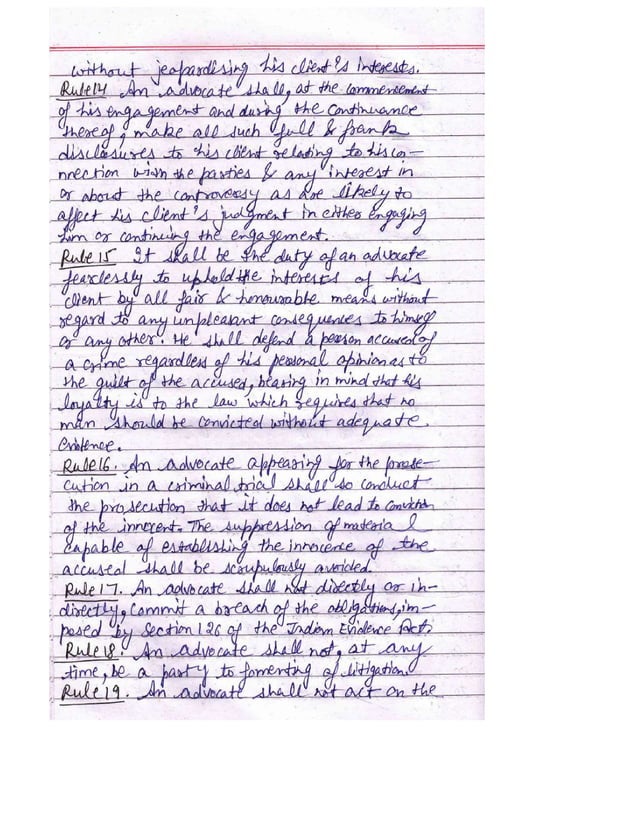 without jeopardising his client's interests.
Rule 14 An advocate shall, at the commencement
of his engagement and during the continuance
thereof, make all such full & frank
disclosures to his client relating to his co-
nnection with the parties & any interest in
or about the controversy as are likely to
affect his client's judgment in either engaging
him or continuing the engagement.
Rule 15 It shall be the duty of an advocate
fearlessly to uphold the interests of his
client by all fair & honourable means without
regard to any unpleasant consequences to himself
or any other. He shall defend a person accused of
a crime regardless of his personal opinion as to
the guilt of the accused, bearing in mind that his
loyalty is to the law which requires that no
man should be convicted without adequate
evidence.
Rule 16. An advocate appearing for the prose-
cution in a criminal trial shall so conduct
the prosecution that it does not lead to conviction
of the innocent. The suppression of material
capable of establishing the innocence of the
accused shall be scrupulously avoided.
Rule 17. An advocate shall not directly or in-
directly, commit a breach of the obligations, im-
posed by Section 126 of the Indian Evidence Act.
Rule 18. An advocate shall not, at any
time, be a party to fomenting of litigation.
Rule 19. An advocate shall not act on the